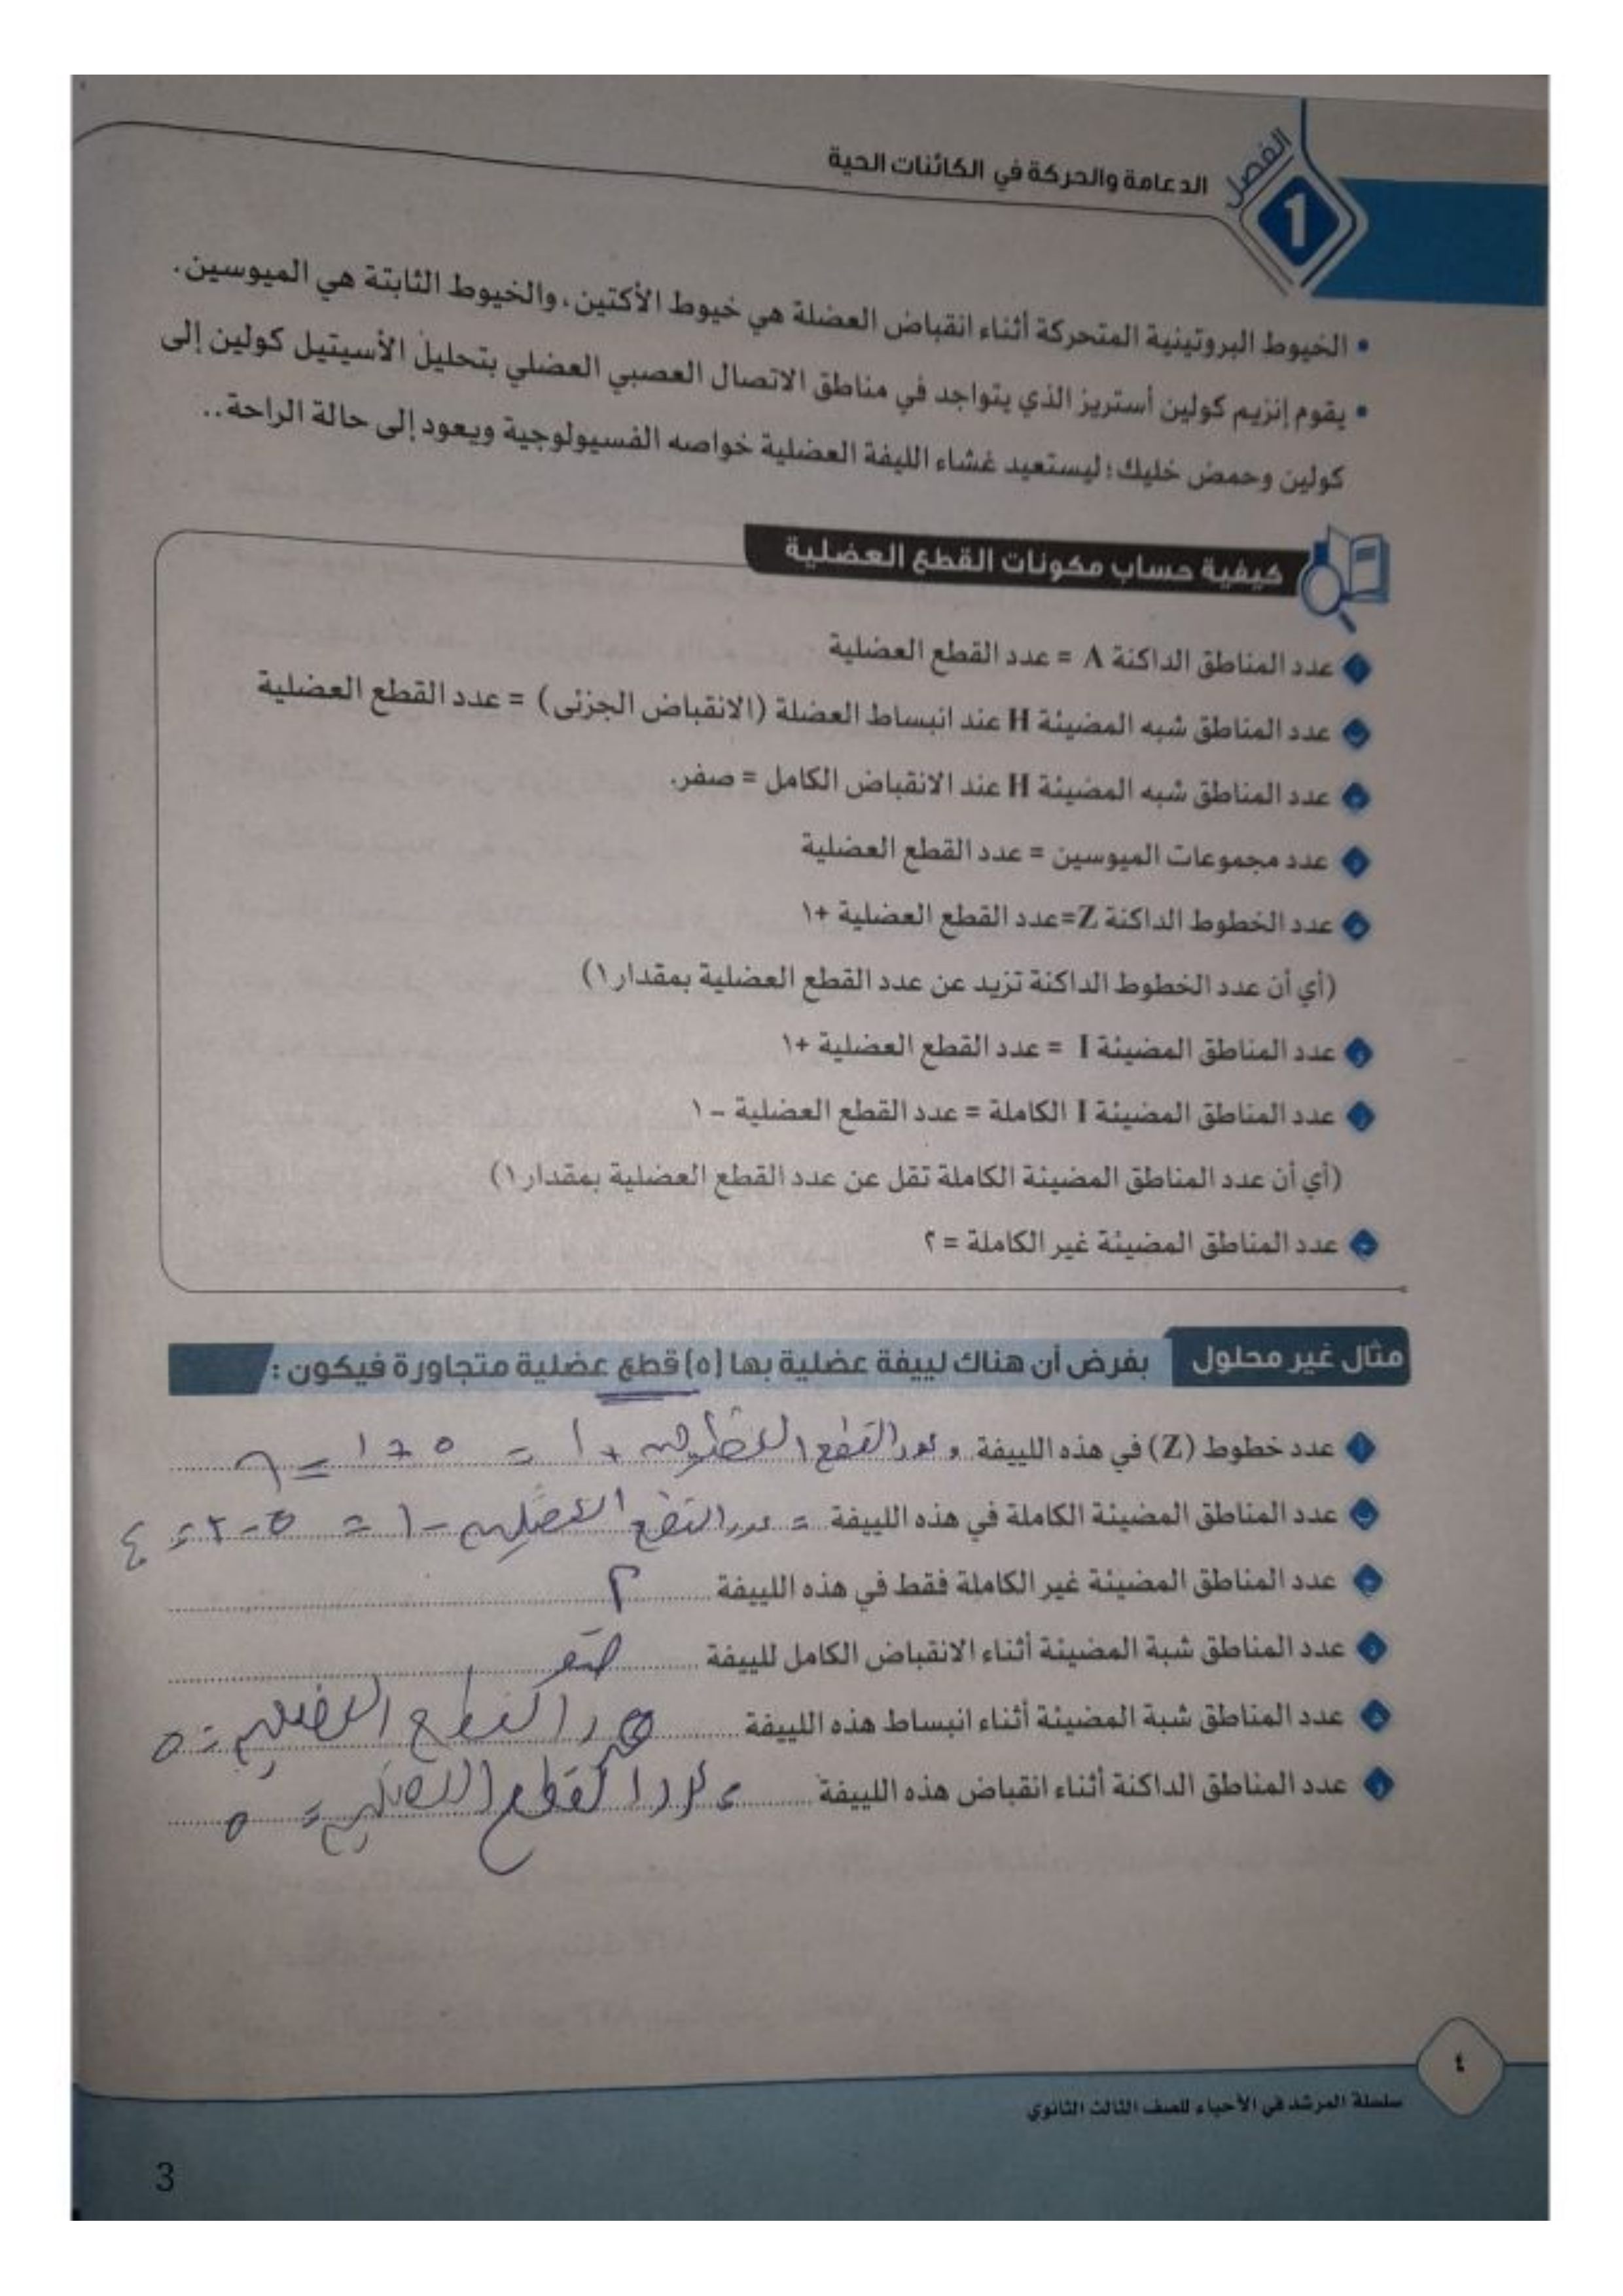 الفصل
1
الدعامة والحركة في الكائنات الحية
• الخيوط البروتينية المتحركة أثناء انقباض العضلة هي خيوط الأكتين، والخيوط الثابتة هي الميوسين.
• يقوم إنزيم كولين أستريز الذي يتواجد في مناطق الاتصال العصبي العضلي بتحليل الأسيتيل كولين إلى
كولين وحمض خليك؛ ليستعيد غشاء الليفة العضلية خواصه الفسيولوجية ويعود إلى حالة الراحة..
كيفية حساب مكونات القطع العضلية
أ عدد المناطق الداكنة A = عدد القطع العضلية
ب عدد المناطق شبه المضيئة H عند انبساط العضلة (الانقباض الجزئى) = عدد القطع العضلية
ج عدد المناطق شبه المضيئة H عند الانقباض الكامل = صفر.
د عدد مجموعات الميوسين = عدد القطع العضلية
ه عدد الخطوط الداكنة Z=عدد القطع العضلية +١
(أي أن عدد الخطوط الداكنة تزيد عن عدد القطع العضلية بمقدار ١)
و عدد المناطق المضيئة I = عدد القطع العضلية +١
ز عدد المناطق المضيئة I الكاملة = عدد القطع العضلية – ١
(أي أن عدد المناطق المضيئة الكاملة تقل عن عدد القطع العضلية بمقدار ١)
ح عدد المناطق المضيئة غير الكاملة = ٢
مثال غير محلول بفرض أن هناك لييفة عضلية بها (٥) قطع عضلية متجاورة فيكون :
أ عدد خطوط (Z) في هذه اللييفة عدد القطع العضلية + ١ = ٥ + ١ = ٦
ب عدد المناطق المضيئة الكاملة في هذه اللييفة = عدد القطع العضلية - ١ = ٥ - ١ = ٤
ج عدد المناطق المضيئة غير الكاملة فقط في هذه اللييفة ٢
د عدد المناطق شبة المضيئة أثناء الانقباض الكامل للييفة صفر
ه عدد المناطق شبة المضيئة أثناء انبساط هذه اللييفة عدد القطع العضلية = ٥
و عدد المناطق الداكنة أثناء انقباض هذه اللييفة عدد القطع العضلية = ٥
٤
سلسلة المرشد في الأحياء للصف الثالث الثانوي
3